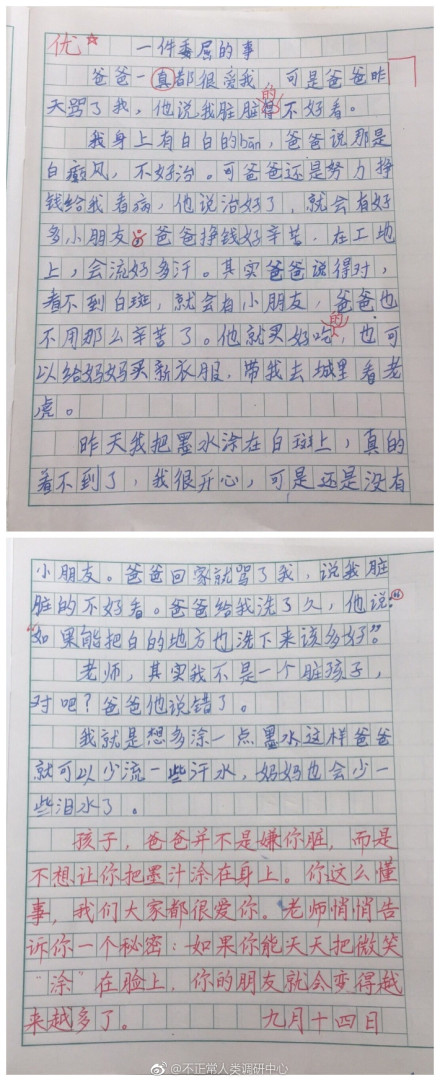 优 一件委屈的事
爸爸一真都很爱我,可是爸爸昨
天骂了我,他说我脏脏得不好看。
的
我身上有白白的bān,爸爸说那是
白癜风,不好治。可爸爸还是努力挣
钱给我看病,他说治好了,就会有好
多小朋友。爸爸挣钱好辛苦,在工地
上,会流好多汗。其实爸爸说得对,
看不到白斑,就会有小朋友,爸爸也
不用那么辛苦了。他就买好吃,也可
的
以给妈妈买新衣服,带我去城里看老
虎。
昨天我把墨水涂在白斑上,真的
看不到了,我很开心,可是还是没有
小朋友。爸爸回家就骂了我,说我脏
脏的不好看。爸爸给我洗了久,他说:
“如果能把白的地方也洗下来该多好”。
老师,其实我不是一个脏孩子,
对吧?爸爸他说错了。
我就是想多涂一点墨水这样爸爸
就可以少流一些汗水,妈妈也会少一
些泪水了。
孩子,爸爸并不是嫌你脏,而是
不想让你把墨汁涂在身上。你这么懂
事,我们大家都很爱你。老师悄悄告
诉你一个秘密:如果你能天天把微笑
“涂”在脸上,你的朋友就会变得越
来越多了。 九月十四日
@不正常人类调研中心